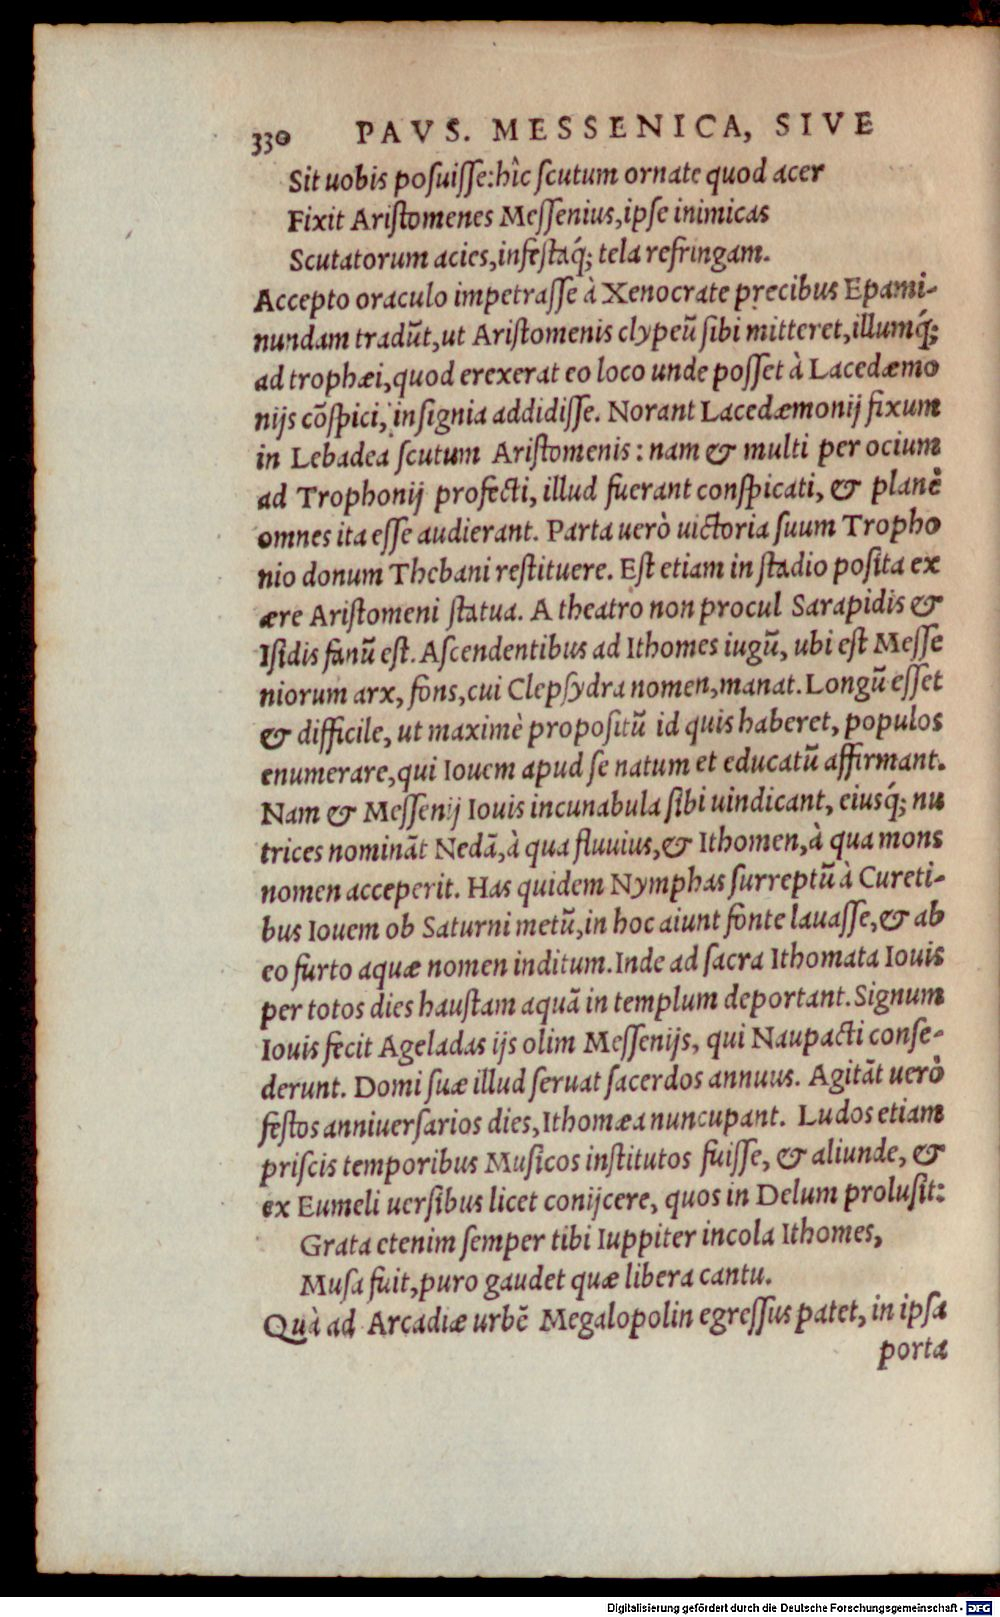 330 PAVS. MESSENICA, SIVE
Sit uobis posuisse: hîc scutum ornate quod acer
Fixit Aristomenes Messenius, ipse inimicas
Scutatorum acies, infestaq́; tela refringam.
Accepto oraculo impetrasse à Xenocrate precibus Epami-
nundam tradũt, ut Aristomenis clypeũ sibi mitteret, illumq́;
ad trophæi, quod erexerat eo loco unde posset à Lacedæmo
nijs cõspici, insignia addidisse. Norant Lacedæmonij fixum
in Lebadea scutum Aristomenis: nam & multi per ocium
ad Trophonij profecti, illud fuerant conspicati, & planè
omnes ita esse audierant. Parta uerò uictoria suum Tropho
nio donum Thebani restituere. Est etiam in stadio posita ex
ære Aristomeni statua. A theatro non procul Sarapidis &
Isidis fanũ est. Ascendentibus ad Ithomes iugũ, ubi est Messe
niorum arx, fons, cui Clepsydra nomen, manat. Longũ esset
& difficile, ut maximè propositũ id quis haberet, populos
enumerare, qui Iouem apud se natum et educatũ affirmant.
Nam & Messenij Iouis incunabula sibi uindicant, eiusq́; nu
trices nominãt Nedã, à qua fluuius, & Ithomen, à qua mons
nomen acceperit. Has quidem Nymphas surreptũ à Cureti-
bus Iouem ob Saturni metũ, in hoc aiunt fonte lauasse, & ab
eo furto aquæ nomen inditum. Inde ad sacra Ithomata Iouis
per totos dies haustam aquã in templum deportant. Signum
Iouis fecit Ageladas ijs olim Messenijs, qui Naupacti conse-
derunt. Domi suæ illud seruat sacerdos annuus. Agitãt uerò
festos anniuersarios dies, Ithomæa nuncupant. Ludos etiam
priscis temporibus Musicos institutos fuisse, & aliunde, &
ex Eumeli uersibus licet conijcere, quos in Delum prolusit:
Grata etenim semper tibi Iuppiter incola Ithomes,
Musa fuit, puro gaudet quæ libera cantu.
Quà ad Arcadiæ urbẽ Megalopolin egressus patet, in ipsa
porta
Digitalisierung gefördert durch die Deutsche Forschungsgemeinschaft - DFG